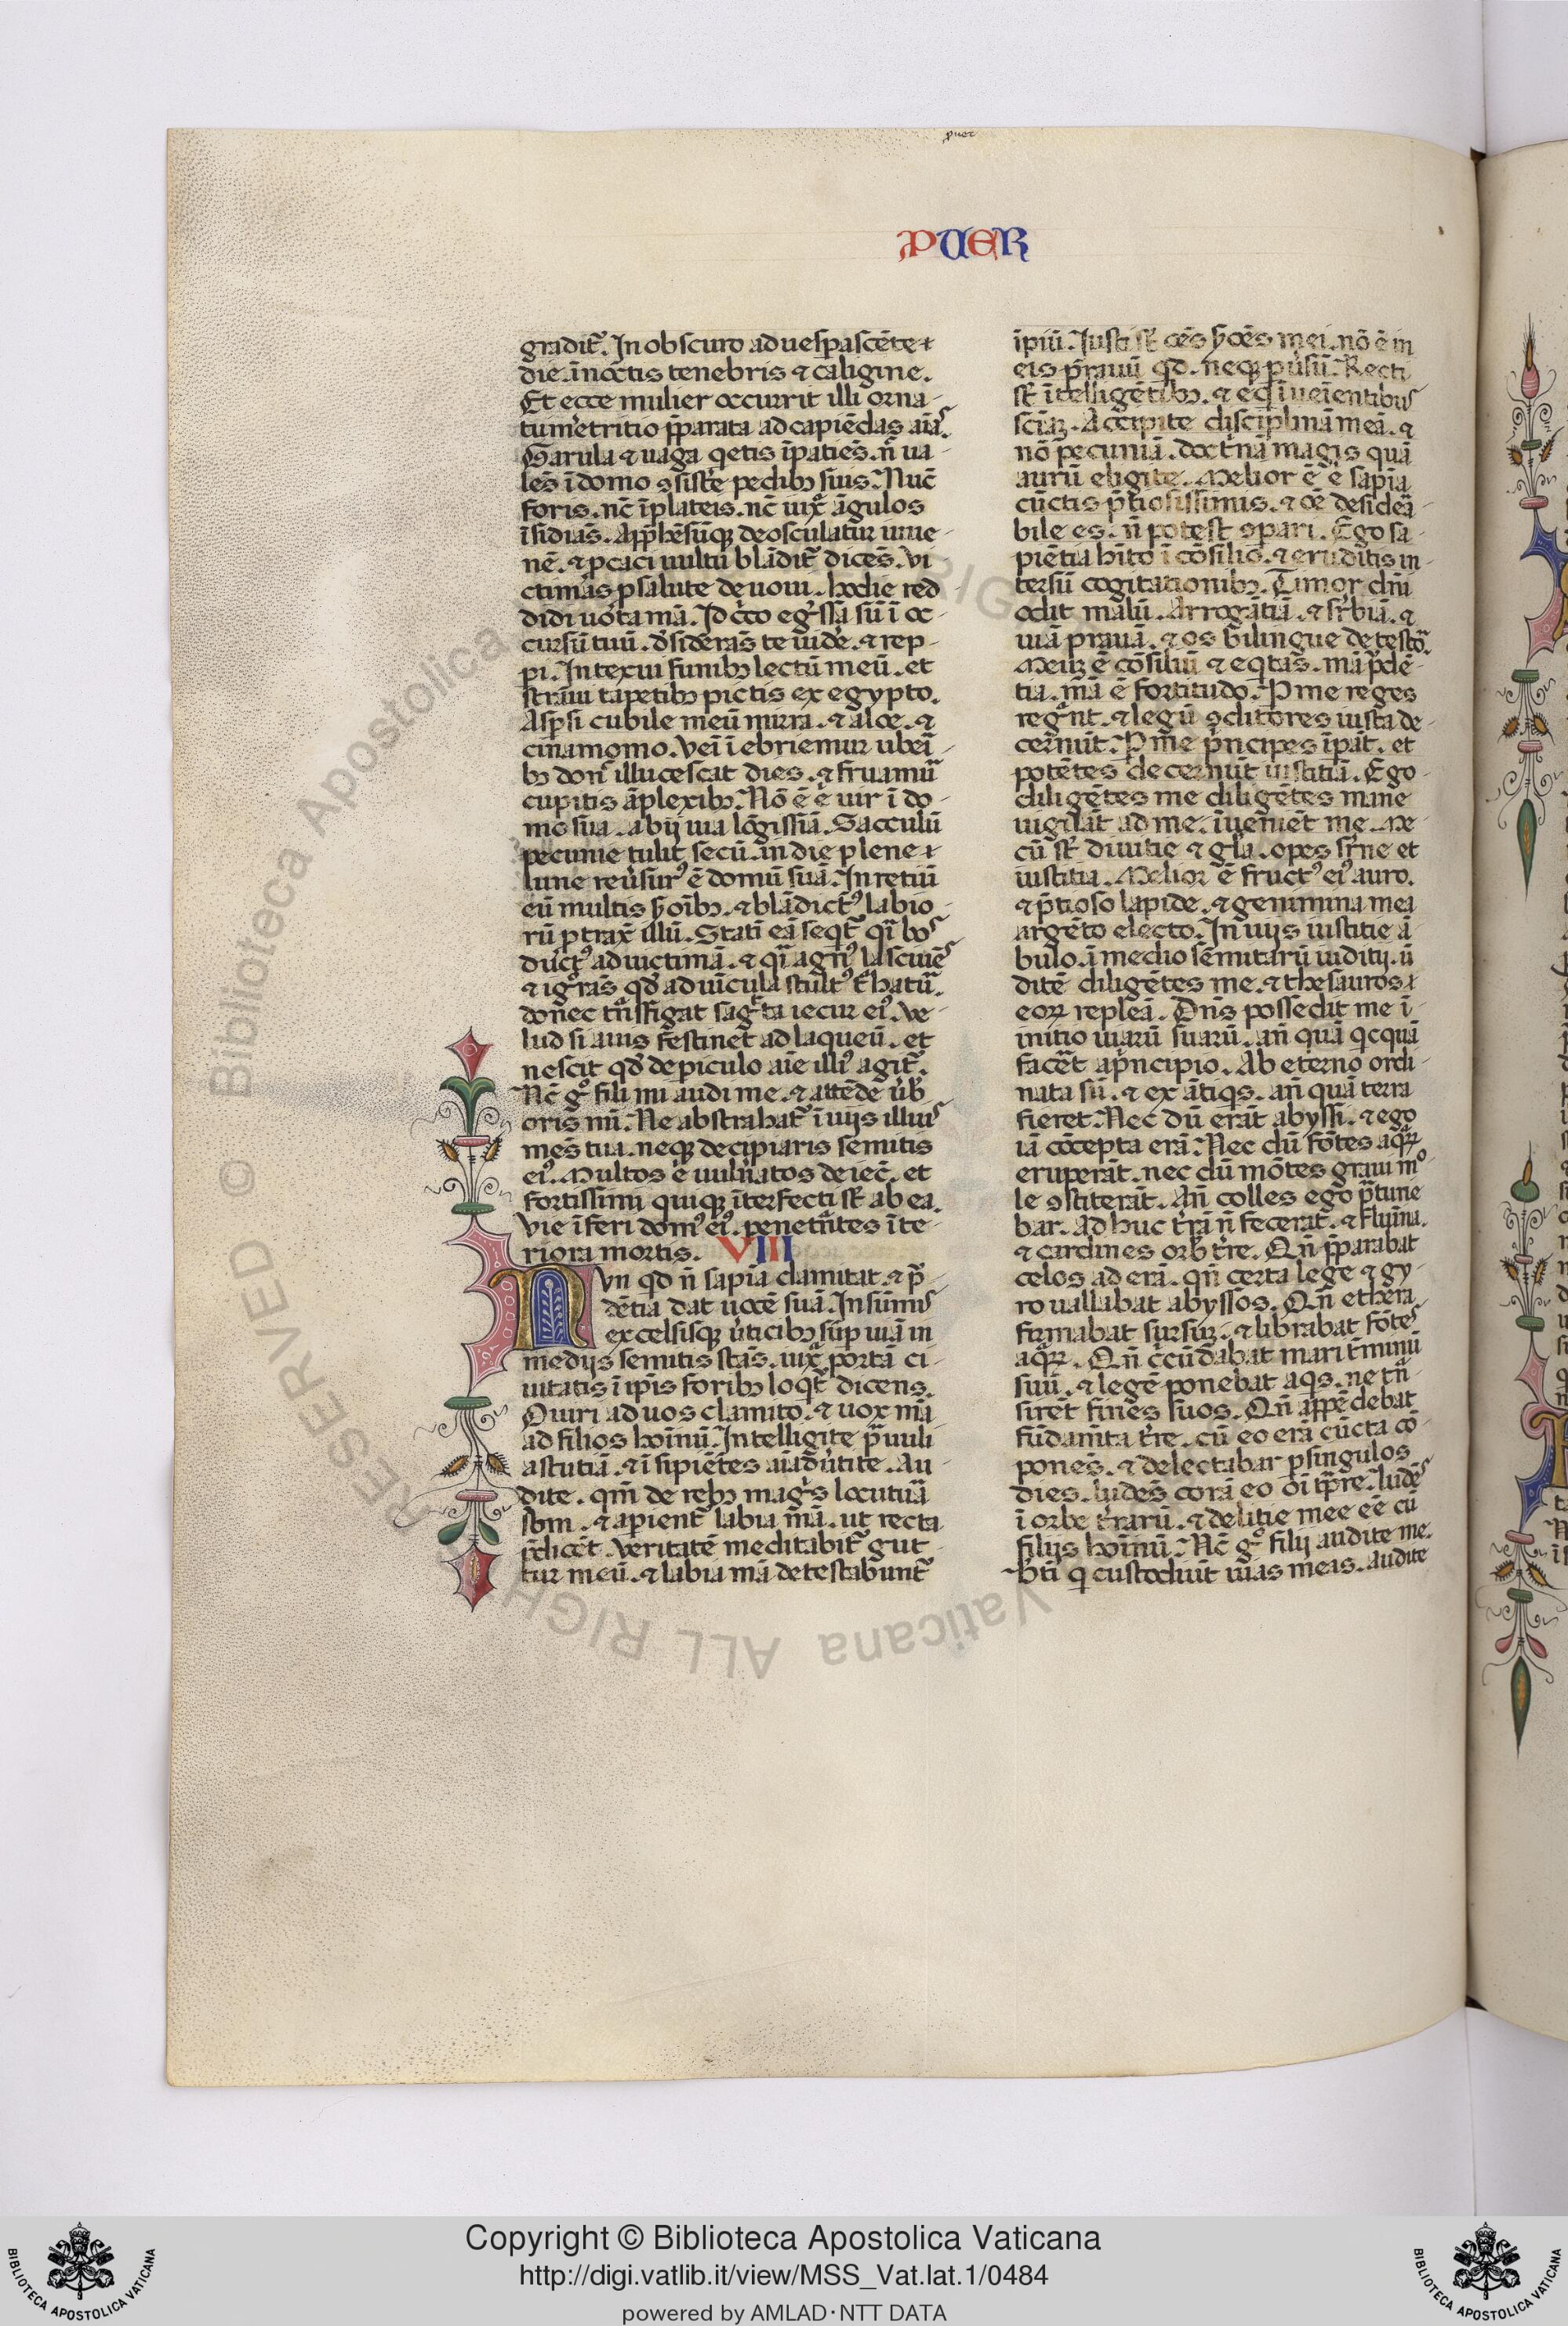 puer
PUER
gradit᷑. In obscuro aduesꝑascēte
die. ī noctis tenebris ⁊ caligine.
Et ecce mulier occurrit illi orna-
tu meretritio p̄parata ad capiēdas aīas.
Garula ⁊ uaga. qetis īpatiēs. n̄ ua-
lēs ī domo ꝯsistere pedibꝫ suis. Nūc
foris. nc̄ ī plateis. nc̄ iux̄ āgulos
īsidiās. Apprehēsūqꝫ deosculatur iuue-
nē. ⁊ ꝓcaci uultu blādit᷑ dicēs. Vi-
ctimas ꝓ salute deuoui. hodie red-
didi uota mā. Idcc̄o egr̄ssa sū ī oc-
cursū tuū. desiderās te uide. ⁊ rep-
pi. Intexui funibꝫ lectū meū. et
straui tapetibꝫ pictis ex egypto.
Aspsi cubile meū mirra. ⁊ aloe. ⁊
cinamomo. Veī īebriemur uberi-
bꝫ don̄ illucescat dies. ⁊ fruamur
cupitis āplexibꝫ. Nō ē ē uir ī do-
mo sua. abij uia lōgissīa. Sacculū
pecunie tulit secū. in die plene
lune reuersurꝰ ē domū suā. Inretiuit
eū multis ẏoībꝫ. ⁊ blādictꝰ labio-
rū ꝓtrax̄ illū. Statī eā seqt᷑ q̄i bos
ductꝰ ad uictimā. ⁊ q̄i agnꝰ lasciuiēs
⁊ igr̄ās qd̄ ad uīcula stultꝰ trahatur.
donec trāsfigat sagitta iecur eiꝰ. Ve-
lud si auis festinet ad laqueū. et
nescit qd̄ de piculo aīe illiꝰ agit᷑.
Nc̄ gͦ fili mi audi me. ⁊ attēde ūb
oris mī. Ne abstrahat᷑ ī uijs illius
mēs tua. neqꝫ decipiaris semitis
eiꝰ. Multos ē uulnatos deiec̄. et
fortissimi quiqꝫ īterfecti st̄ ab ea.
Vie īferi domꝰ eiꝰ. penetrātes īte-
riora mortis. VIII
Nvn qd n̄ sapīa clamitat. ⁊ pru-
dētia dat uocē suā. In sūmis
excelsisqꝫ ūticibꝫ sup uiā in
medijs semitis stās. iux̄ portā ci-
uitatis ī ip̄is foribꝫ loqt᷑ dicens.
O uiri ad uos clamito. ⁊ uox mā
ad filios hoīnū. Intelligite p̄uuli
astutiā. ⁊ īsipiētes aīaduertite. Au-
dite. qm̄ de rebꝫ magis locutura
sum. ⁊ apient᷑ labia mā. ut recta
p̄dicēt. Veritatē meditabit᷑ gut-
tur meū. ⁊ labia mā detestabunt᷑
īpiū. Iusti st̄ oēs ẏoēs mei. nō ē in
eis prauū qd. neqꝫ ꝑuersū. Recti
st̄ ītelligētibꝫ. ⁊ eqi īueīentibus
scīāꝫ. Accipite disciplinā meā. ⁊
nō pecuniā. doctrinā magis quā
aurū eligite. Melior ē ē sapīa
cūctis p̄tiosissimis. ⁊ oē desiderā-
bile eis. n̄ potest ꝯpari. Ego sa-
piētia hīto ī cōsilio. ⁊ eruditis in-
tersū cogitationibꝫ. Timor dn̄i
odit malū. Arrogātiā. ⁊ sr̄biā. ⁊
uiā prauā. ⁊ os bilingue detestor.
Meuꝫ ē cōsiliū ⁊ eqtas. mā p̄dē-
tia. mā ē fortitudo. P me reges
regnāt. ⁊ legū ꝯditores iusta de-
cernūt. P me p̄ncipes īpāt. et
potētes decernūt iustitiā. Ego
diligētes me diligētes mane
uigilāt ad me. īueniēt me. Me-
cū st̄ diuitie ⁊ gl̄a. opes sr̄ne et
iustitia. Melior ē fructꝰ eiꝰ auro.
⁊ p̄tioso lapide. ⁊ genimina mea
argēto electo. In uijs iustitie ā-
bulo. ī medio semitarū iuditij. ut
ditē diligētes me. ⁊ thesauros
eoꝝ repleā. Dn̄s possedit me ī
initio uiarū suarū. an̄ quā qcquā
facēt a p̄ncipio. Ab eterno ordi-
nata sū. ⁊ ex ātiqs. an̄ quā terra
fieret. Nec dū erāt abyssi. ⁊ ego
iā cōcepta erā. Nec dū fōtes aqꝝ
eruperāt. nec dū mōtes graui mo-
le ꝯstiterāt. An̄ colles ego p̄turie-
bar. Adhuc t̄rā n̄ fecerat. ⁊ flumīa.
⁊ cardines orb t̄re. Qn̄ p̄parabat
celos aderā. qn̄ certa lege ⁊ gy-
ro uallabat abyssos. Qn̄ ethera
firmabat sursuꝫ. ⁊ librabat fōtes
aqꝝ. Qn̄ c̄cūdabat mari t̄minū
suū. ⁊ legē ponebat aqs. ne trā-
sirēt fines suos. Qn̄ appēdebat
fūdamēta t̄re. cū eo erā cūcta cō-
ponēs. ⁊ delectabar p singulos
dies. ludēs corā eo oī tp̄re. ludēs
ī orbe t̄rarū. ⁊ delitie mee ēē cū
filijs hoīnū. Nc̄ gͦ filij audite me.
bt̄i q custodiūt uias meas. Audite
Copyright © Biblioteca Apostolica Vaticana
http://digi.vatlib.it/view/MSS_Vat.lat.1/0484
powered by AMLAD·NTT DATA
BIBLIOTECA APOSTOLICA VATICANA
BIBLIOTECA APOSTOLICA VATICANA
© Biblioteca Apostolica Vaticana ALL RIGHTS RESERVED